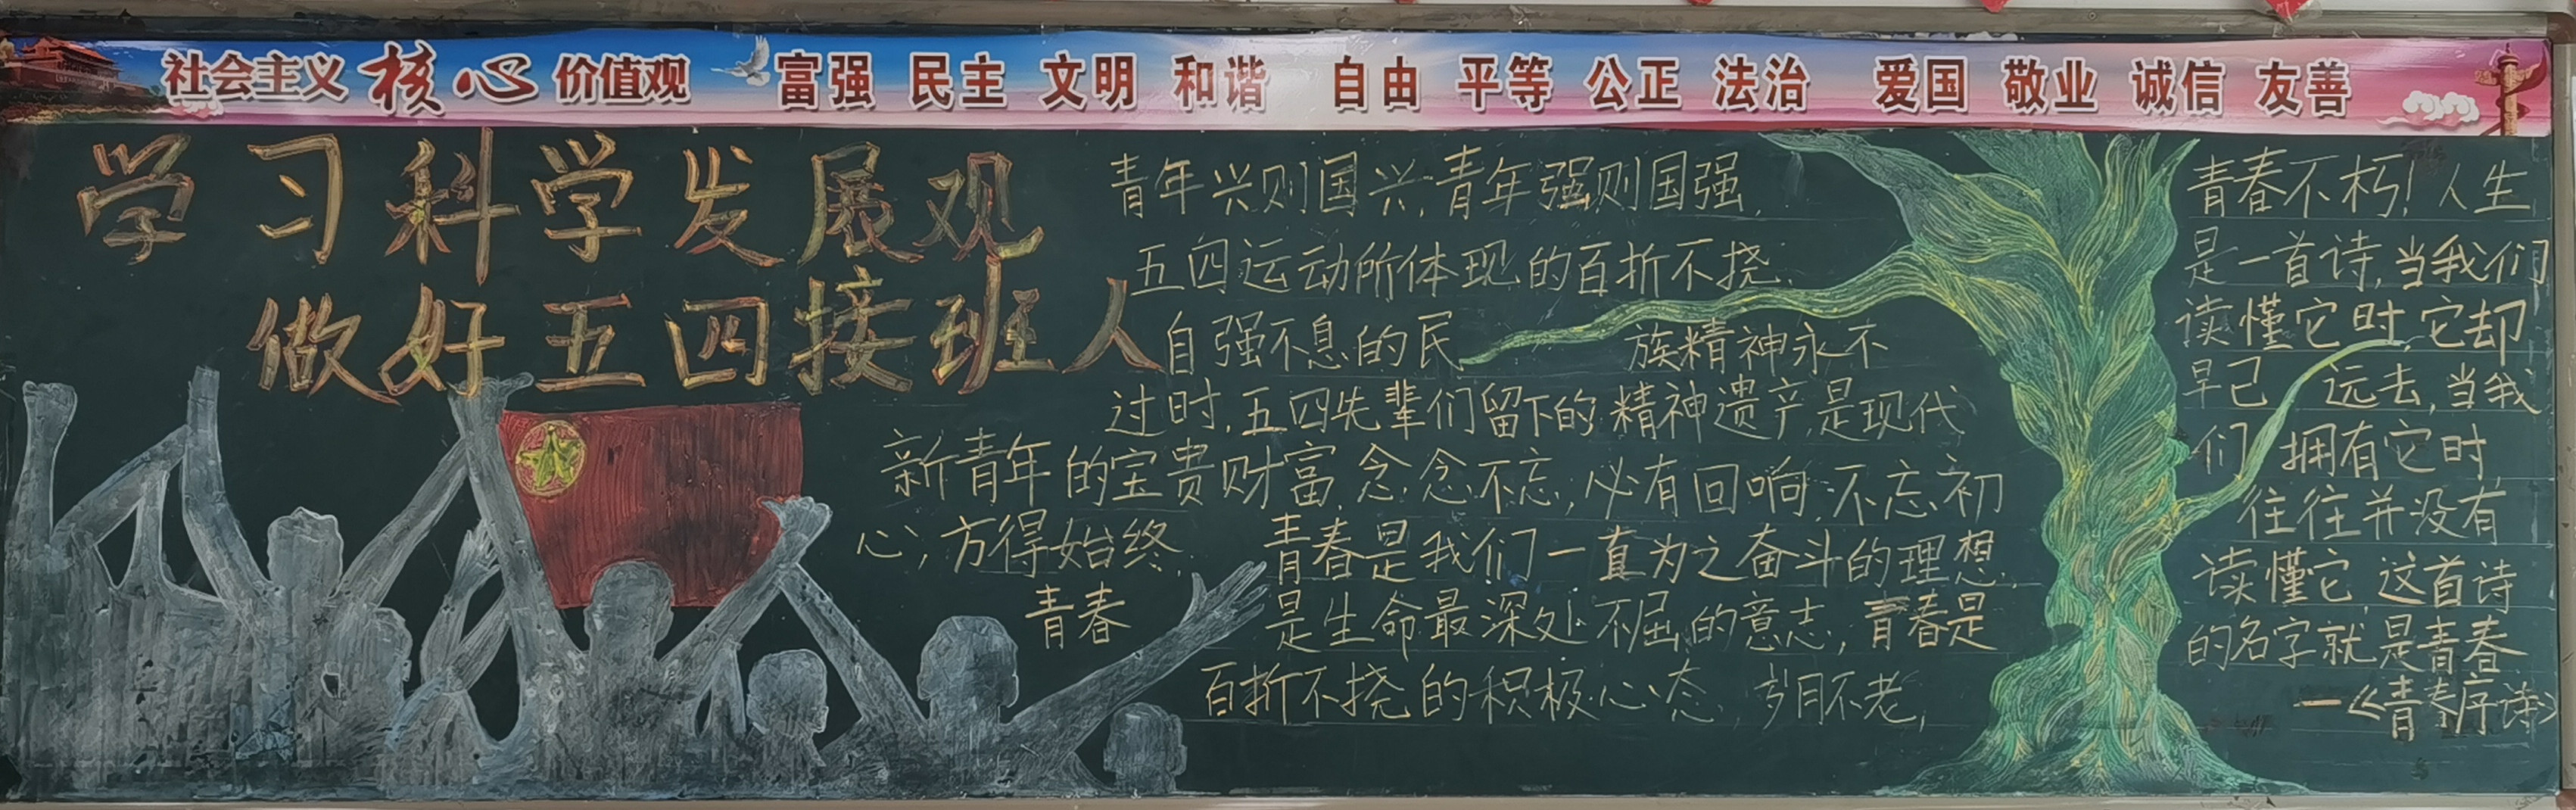 社会主义核心价值观 富强 民主 文明 和谐 自由 平等 公正 法治 爱国 敬业 诚信 友善
学习科学发展观
做好五四接班人
青年兴则国兴,青年强则国强,
五四运动所体现的百折不挠,
自强不息的民族精神永不
过时,五四先辈们留下的精神遗产,是现代
新青年的宝贵财富,念念不忘,必有回响,不忘初
心,方得始终,
青春
青春是我们一直为之奋斗的理想,
是生命最深处不屈的意志,青春是
百折不挠的积极心态,岁月不老,
青春不朽!人生
是一首诗,当我们
读懂它时,它却
早已远去,当我
们拥有它时
往往并没有
读懂它 这首诗
的名字就是青春
—《青春序诗》